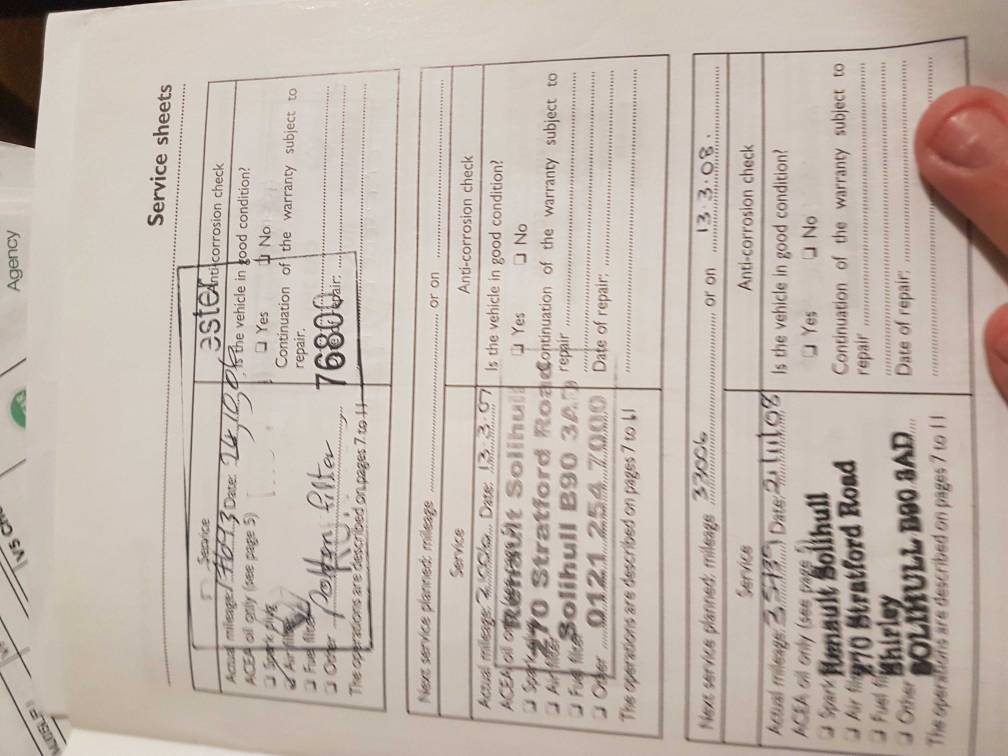 Agency
Service sheets
Service
Anti-corrosion check
Actual mileage: Date: 24/10/06
Is the vehicle in good condition?
ACEA oil only (see page 5)
❑ Yes ❑ No
❑ Spark plug
Continuation of the warranty subject to
❑ Air filter
repair.
❑ Fuel filter
76800
❑ Order Pollen filter
The operations are described on pages 7 to 11
Next service planned; mileage or on
Service
Anti-corrosion check
Actual mileage: Date: 13.3.07
Is the vehicle in good condition?
ACEA oil only
❑ Yes ❑ No
Renault Solihull
270 Stratford Road
Solihull B90 3AD
0121 254 7000
Continuation of the warranty subject to
repair
Date of repair:
❑ Spark
❑ Air filter
❑ Fuel filter
❑ Order
The operations are described on pages 7 to 11
Next service planned; mileage 33006 or on 13.3.08.
Service
Anti-corrosion check
Actual mileage: 35135 Date: 21/1/08
Is the vehicle in good condition?
ACEA oil only (see page
❑ Yes ❑ No
❑ Spark Renault Solihull
Continuation of the warranty subject to
❑ Air 270 Stratford Road
repair
❑ Fuel Shirley
❑ Other SOLIHULL B90 3AD
Date of repair:
The operations are described on pages 7 to 11